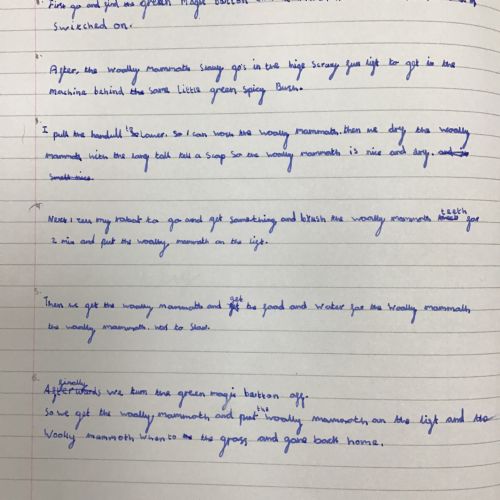 1. First go and find the green magic button
switched on.
2.
After, the woolly mammoth slowly gos in the hige scrazy fun lift to get in the
machine behind the same little green spicy Bush.
3.
I pull the handull so I can wosh the woolly mammoth. then we dry the woolly
mammoth with the long tall a so the woolly mammoth is nice and dry. and is
smell nice.
4.
Next I tell my robot to go and get something and brush the woolly mammoth teeth for
2 min and put the woolly mammoth on the ligt.
5.
Then we get the woolly mammoth and get the food and water for the woolly mammoth
the woolly mammoth. was to slow.
6.
Afterwards finally we turn the green magic button off.
So we get the woolly mammoth and put the woolly mammoth on the ligt and the
woolly mammoth when to the grass and gone back home.